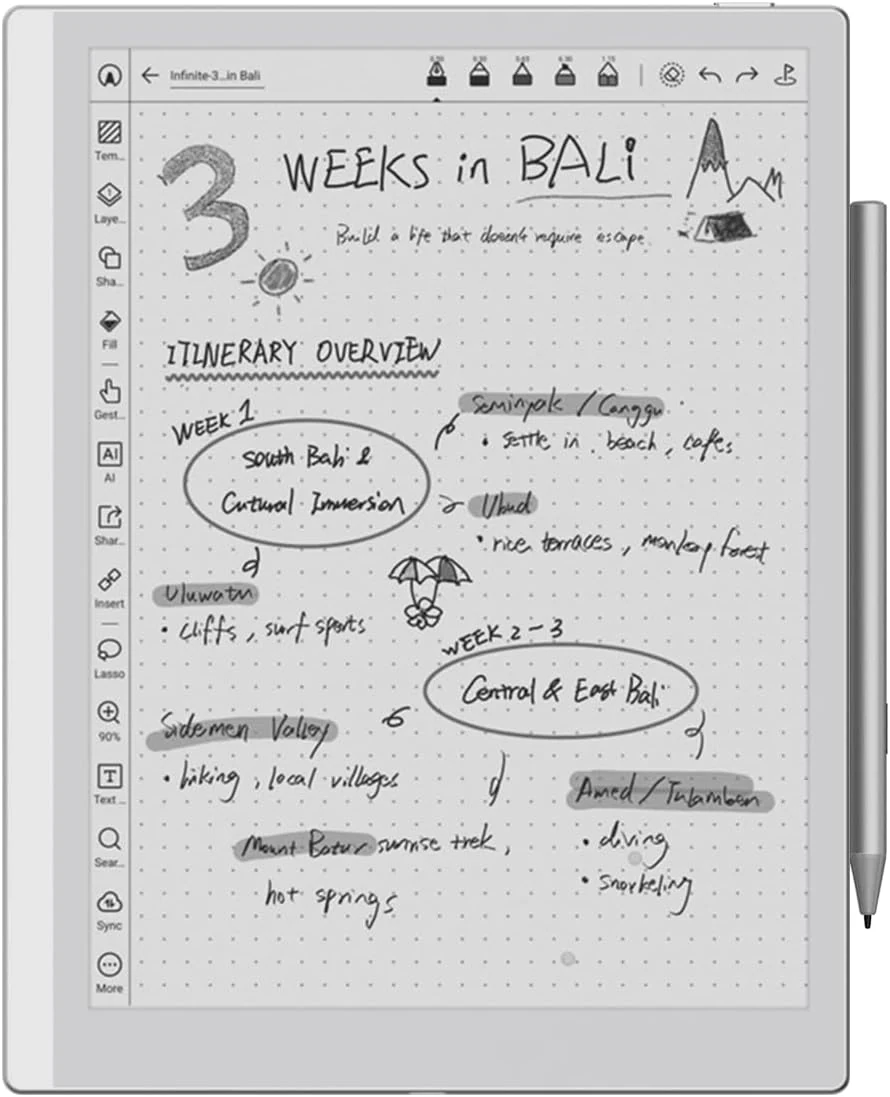 Infinite-3...in Bali
Tem...
Laye...
Sha...
Fill
Gest...
AI
AI
Shar...
Insert
Lasso
90%
T
Text ...
Sear...
Sync
More
3 WEEKS in BALi
Build a life that doesn't require escape.
ITINERARY OVERVIEW
WEEK 1
South Bali &
Cutural Immersion
Seminyak / Canggu
• settle in, beach, cafes
Ubud
• rice terraces, monkey forest
Uluwatu
• cliffs, surf sports
WEEK 2-3
Central & East Bali
Sidemen Valley
• hiking, local villages
Mount Batur sunrise trek,
hot springs
Amed / Tulamben
• diving
• snorkeling